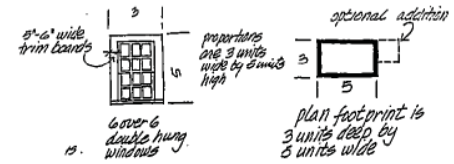 3
5"-6" wide
trim boards
proportions
are 3 units
wide by 5 units
high
5
6 over 6
double hung
windows
15.
optional addition
3
5
plan footprint is
3 units deep by
5 units wide